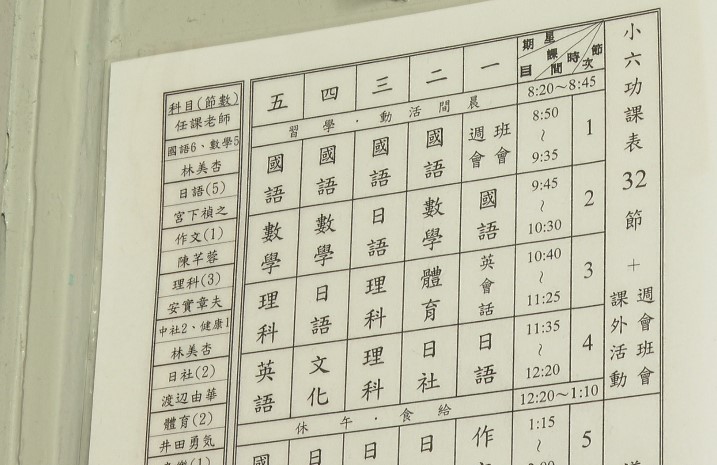 小六功課表 32 節 + 週會班會 課外活動
星期 課目 時間 節次
一 二 三 四 五
8:20～8:45 晨間活動・學習
1 8:50～9:35 週會 班會 國語 國語 國語 國語
2 9:45～10:30 國語 數學 日語 數學 數學
3 10:40～11:25 英會話 體育 理科 日語 理科
4 11:35～12:20 日語 日社 理科 文化 英語
12:20～1:10 給食・午休
5 1:15～ 作 日 日 日 國
科目(節數)
任課老師
國語6、數學5
林美杏
日語(5)
宮下禎之
作文(1)
陳芊蓉
理科(3)
安實章夫
中社2、健康1
林美杏
日社(2)
渡辺由華
體育(2)
井田勇気